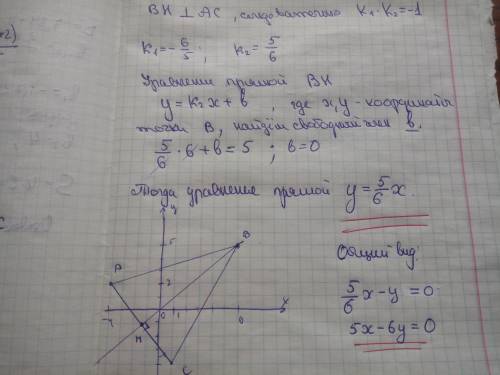 BH ⊥ AC, следовательно K₁·K₂=-1
K₁=-6/5; K₂=5/6
Уравнение прямой BH
y=K₂x+b, где x,y-координаты
точки B, найдём свободный член b.
5/6·6+b=5; b=0
Тогда уравнение прямой y=5/6x.
Общий вид:
5/6x-y=0
5x-6y=0
y
5
B
A
2
x
0
1
6
H
C